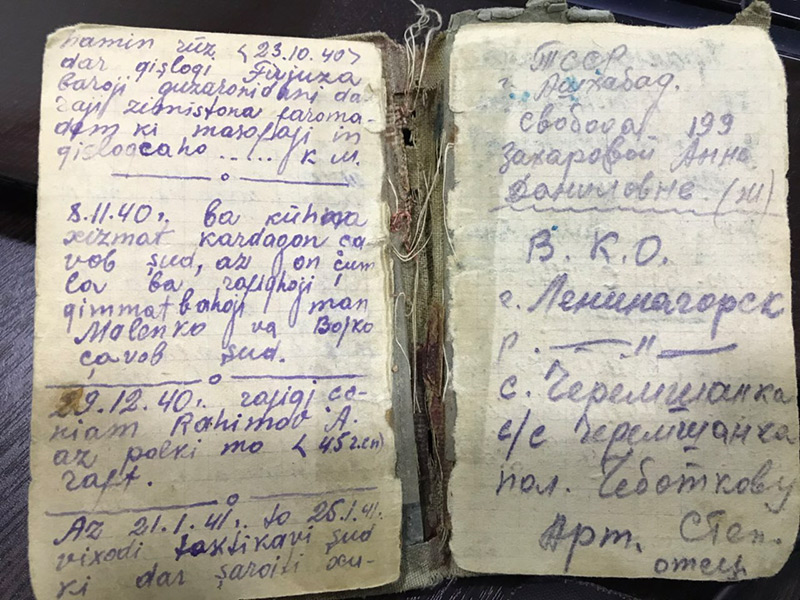 hamin rūz <23.10.40>
dar qişloqi Firjuza
baroji guzaronidani da-
raji zimistona faroma-
dem ki masofaji in
qişloqcaho ..... K M.
8.11.40г. ba kūhna
xizmat kardagon ça-
vob şud, az on çum
la ba rafiqhoji
qimmatbahoji man
Malenko va Bojko
çavob şud.
29.12.40г. rafiqi ço-
niam Rahimov A.
az polki mo <45 г.сп>
raft.
Az 21.1.41г. to 25.1.41.
vixodi taktikavi şud
ki dar şaroiti xu-
ТССР
г. Ашхабад.
свобода 199
Захаровой Анне
Даниловне. (Ж)
В. К. О.
г. Лениногорск
р. —"—
с. Черемшанка
с/с Черемшанка
пол. Чеботкову
Арт. Степ.
отец